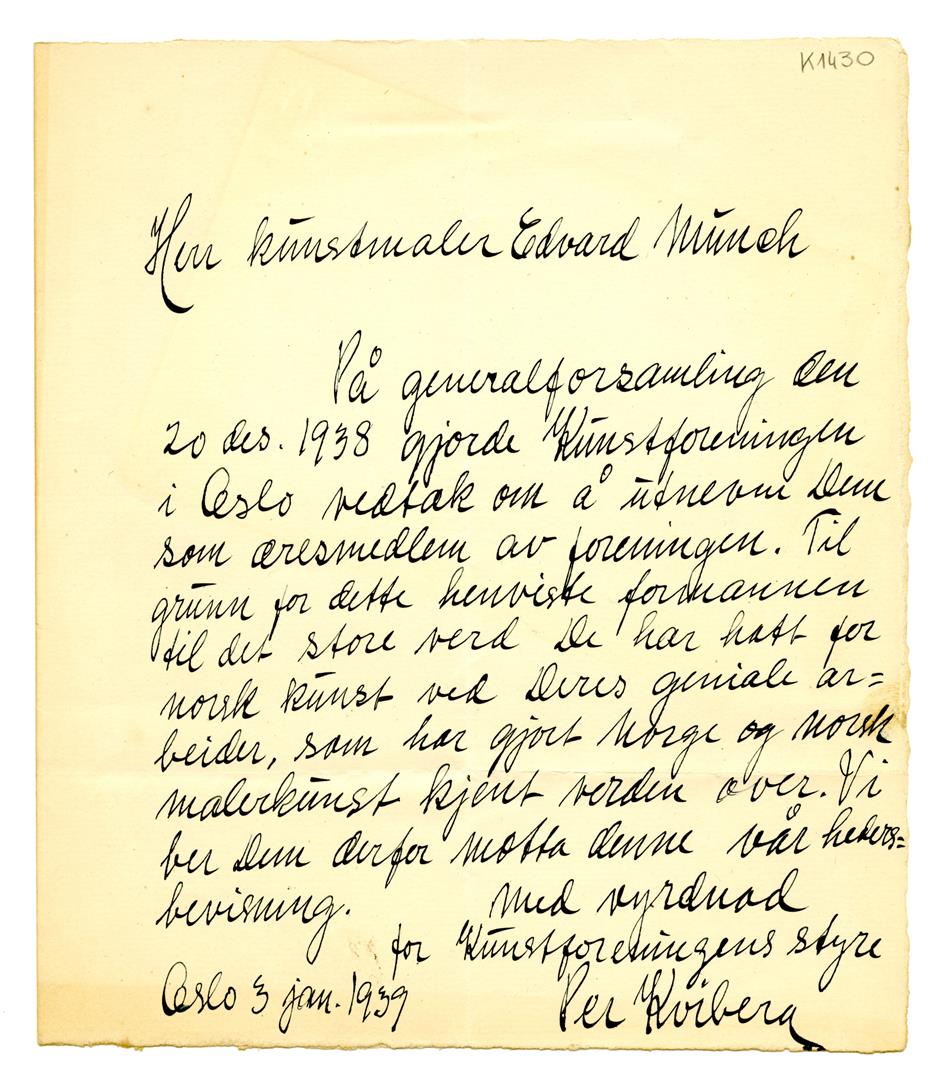 K1430
Herr kunstmaler Edvard Munch
På generalforsamling den
20 des. 1938 gjorde Kunstforeningen
i Oslo vedtak om å utnevne Dem
som æresmedlem av foreningen. Til
grunn for dette henviste formannen
til det store verd De har hatt for
norsk kunst ved Deres geniale ar=
beider, som har gjort Norge og norsk
malerkunst kjent verden over. Vi
ber Dem derfor motta denne vår heders=
bevisning.
Med vyrdnad
for Kunstforeningens styre
Oslo 3 jan. 1939
Per Kviberg